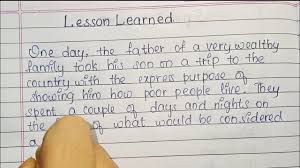 Lesson Learned
One day, the father of a very wealthy
family took his son on a trip to the
country with the express purpose of
showing him how poor people live. They
spent a couple of days and nights on
the of what would be considered
a